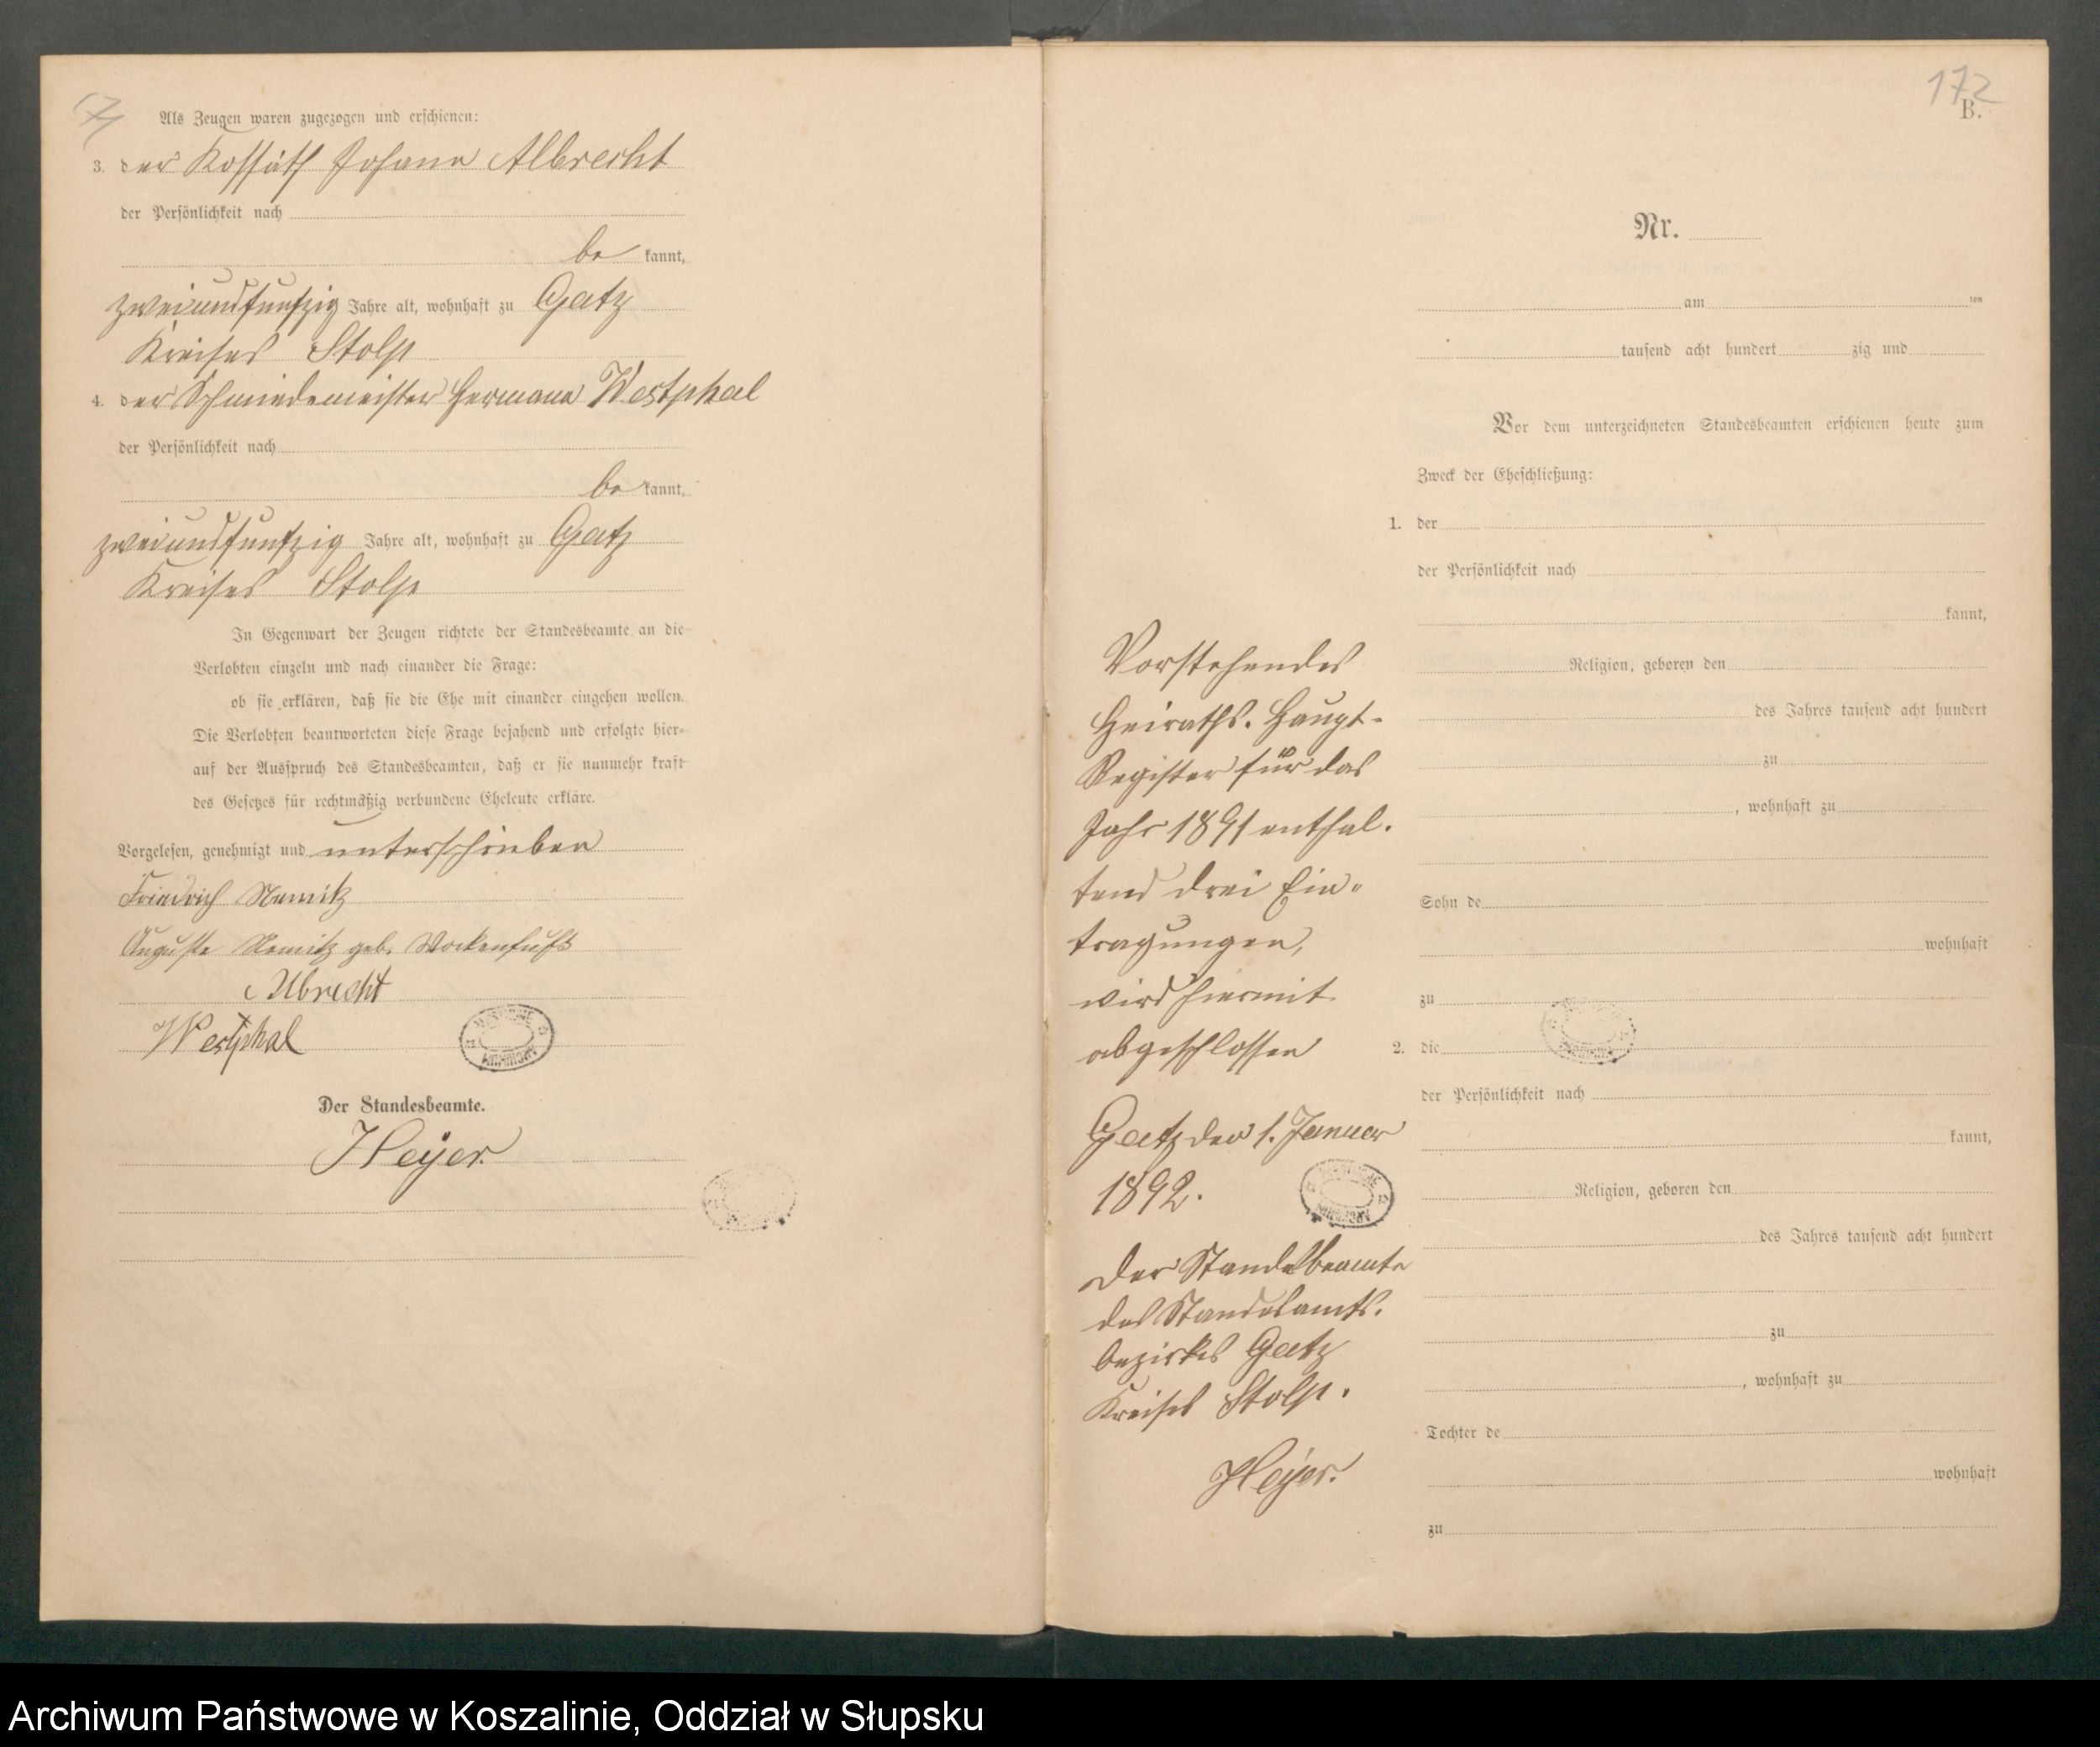 Als Zeugen waren zugezogen und erschienen:
3. der Kossäth Johann Albrecht
der Persönlichkeit nach
be kannt,
zweiundfunfzig Jahre alt, wohnhaft zu Gatz
Kreises Stolp
4. der Schmiedemeister Hermann Westphal
der Persönlichkeit nach
be kannt,
zweiundfunfzig Jahre alt, wohnhaft zu Gatz
Kreises Stolp
In Gegenwart der Zeugen richtete der Standesbeamte an die
Verlobten einzeln und nach einander die Frage:
ob sie erklären, daß sie die Ehe mit einander eingehen wollen.
Die Verlobten beantworteten diese Frage bejahend und erfolgte hier-
auf der Ausspruch des Standesbeamten, daß er sie nunmehr kraft
des Gesetzes für rechtmäßig verbundene Eheleute erkläre.
Vorgelesen, genehmigt und unterschrieben
Friedrich Nemitz
Auguste Nemitz geb. Wockenfuß
Albrecht
Westphal
Der Standesbeamte.
Heyer.
172
B.
Nr.
am ten
tausend acht hundert zig und
Vor dem unterzeichneten Standesbeamten erschienen heute zum
Zweck der Eheschließung:
1. der
der Persönlichkeit nach
kannt,
Religion, geboren den
des Jahres tausend acht hundert
zu
, wohnhaft zu
Sohn de
wohnhaft
zu
2. die
der Persönlichkeit nach
kannt,
Religion, geboren den
des Jahres tausend acht hundert
zu
, wohnhaft zu
Tochter de
wohnhaft
zu
Vorstehendes
Heiraths-Haupt-
Register für das
Jahr 1891 enthal-
tend drei Ein-
tragungen,
wird hiermit
abgeschlossen
Gatz den 1. Januar
1892.
Der Standesbeamte
des Standesamts-
bezirkes Gatz
Kreises Stolp.
Heyer.
Archiwum Państwowe w Koszalinie, Oddział w Słupsku